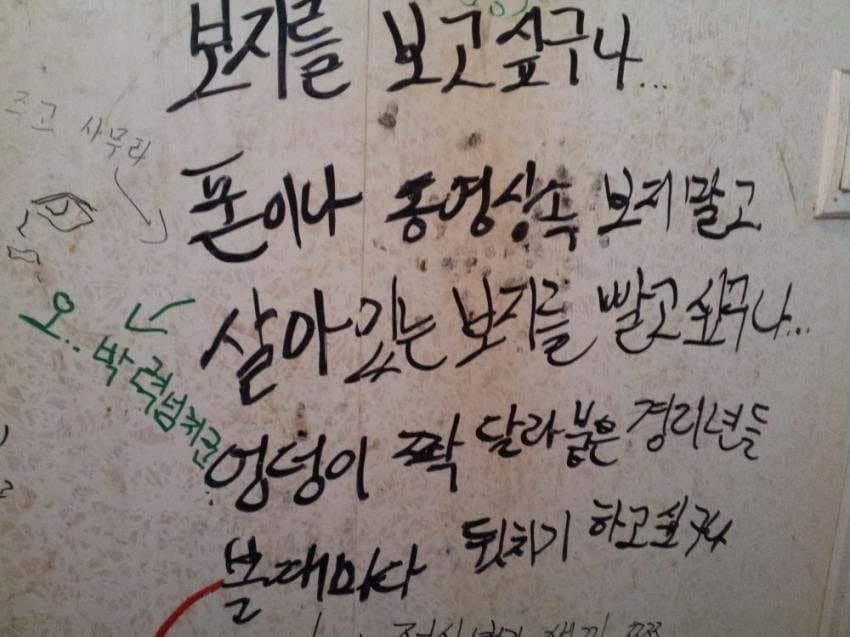 보지를 보고싶구나...
조고 사무라
폰이나 동영상속 보지 말고
살아있는 보지를 빨고싶구나...
오.. 박력넘치군
엉덩이 짝 달라붙은 경리년들
볼때마다 뒷치기 하고싶구나